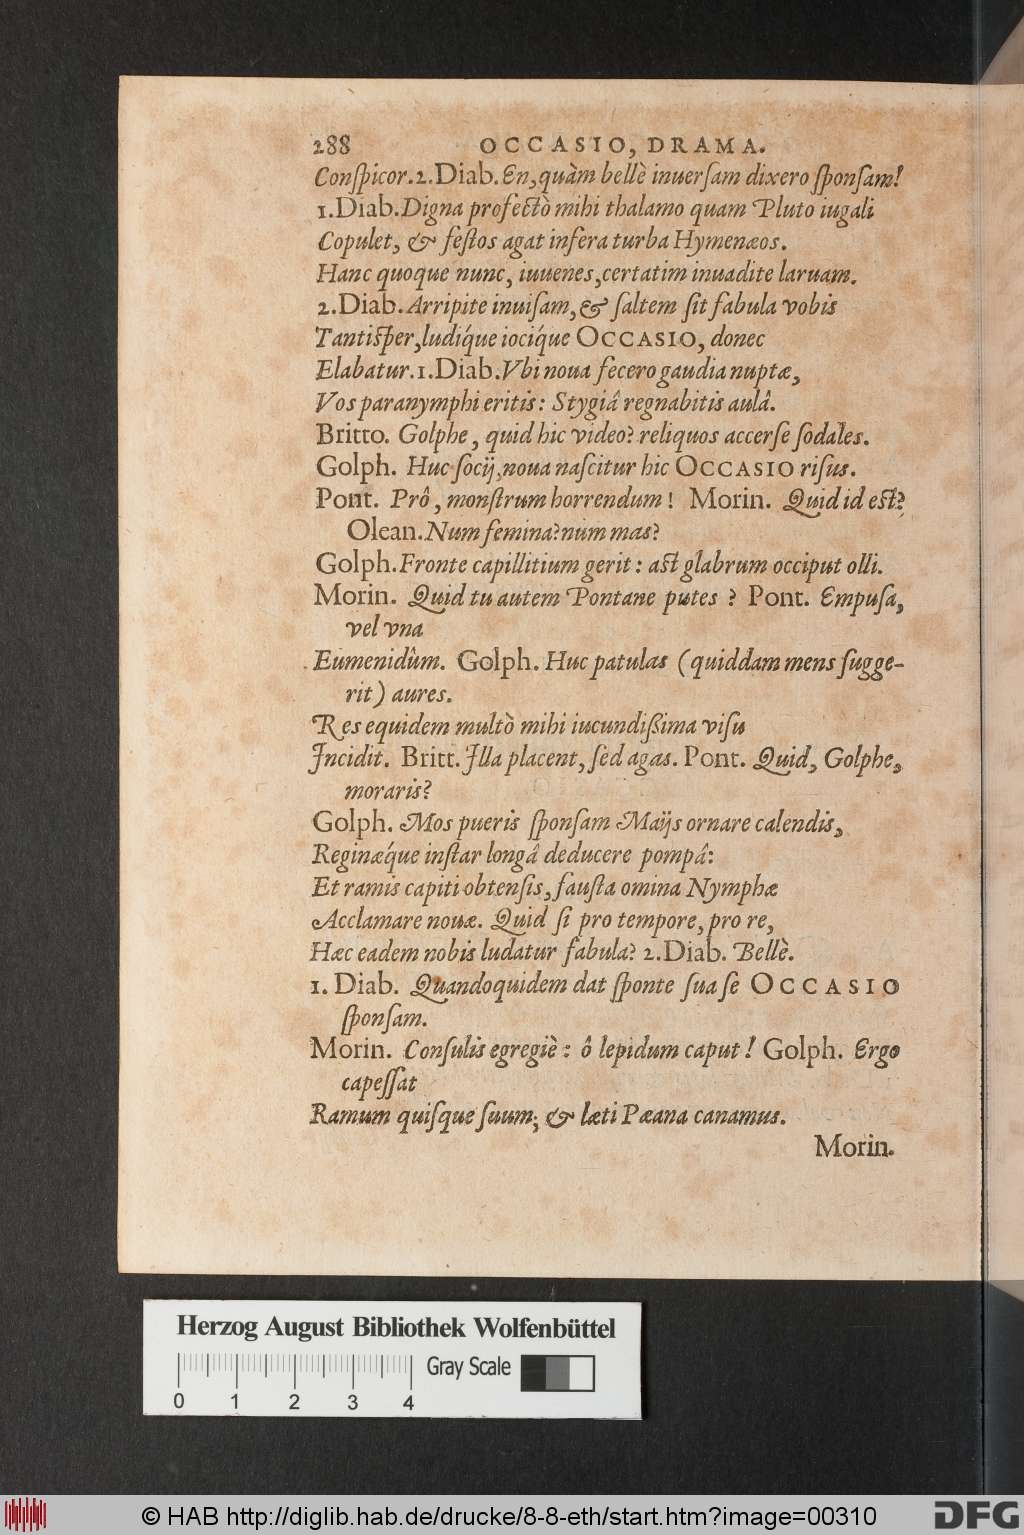 288 OCCASIO, DRAMA.
Conspicor. 2. Diab. En, quàm bellè inuersam dixero sponsam!
1. Diab. Digna profectò mihi thalamo quam Pluto iugali
Copulet, & festos agat infera turba Hymenæos.
Hanc quoque nunc, iuuenes, certatim inuadite laruam.
2. Diab. Arripite inuisam, & saltem sit fabula vobis
Tantisper, ludíque iocíque OCCASIO, donec
Elabatur. 1. Diab. Vbi noua fecero gaudia nuptæ,
Vos paranymphi eritis: Stygiâ regnabitis aulâ.
Britto. Golphe, quid hic video? reliquos accerse sodales.
Golph. Huc socij, noua nascitur hic OCCASIO risus.
Pont. Prô, monstrum horrendum! Morin. Quid id est?
Olean. Num femina? num mas?
Golph. Fronte capillitium gerit: ast glabrum occiput olli.
Morin. Quid tu autem Pontane putes? Pont. Empusa,
vel vna
Eumenidûm. Golph. Huc patulas (quiddam mens sugge-
rit) aures.
Res equidem multò mihi iucundißima visu
Incidit. Britt. Illa placent, sed agas. Pont. Quid, Golphe,
moraris?
Golph. Mos pueris sponsam Maijs ornare calendis,
Reginæque instar longâ deducere pompâ:
Et ramis capiti obtensis, fausta omina Nymphæ
Acclamare nouæ. Quid si pro tempore, pro re,
Hæc eadem nobis ludatur fabula? 2. Diab. Bellè.
1. Diab. Quandoquidem dat sponte sua se OCCASIO
sponsam.
Morin. Consulis egregiè: ô lepidum caput! Golph. Ergo
capessat
Ramum quisque suum; & læti Pæana canamus.
Morin.
Herzog August Bibliothek Wolfenbüttel
Gray Scale
0 1 2 3 4
© HAB http://diglib.hab.de/drucke/8-8-eth/start.htm?image=00310
DFG